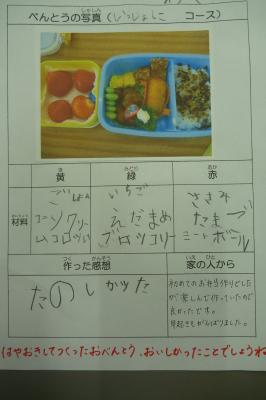 べんとうの写真(いっしょに コース)
しゃしん
き
黄
みどり
緑
あか
赤
ざいりょう
材料
ごはん
コーンクリー
ムコロッケ
いちご
えだまめ
ブロッコリー
ささみ
たまご
ミートボール
つく かんそう
作った感想
いえ ひと
家の人から
たのしかッた
初めてのお弁当作りでした
が楽しんで作っていたので
良かったです。
早起きもがんばりました。
はやおきしてつくったおべんとう、おいしかったことでしょうね